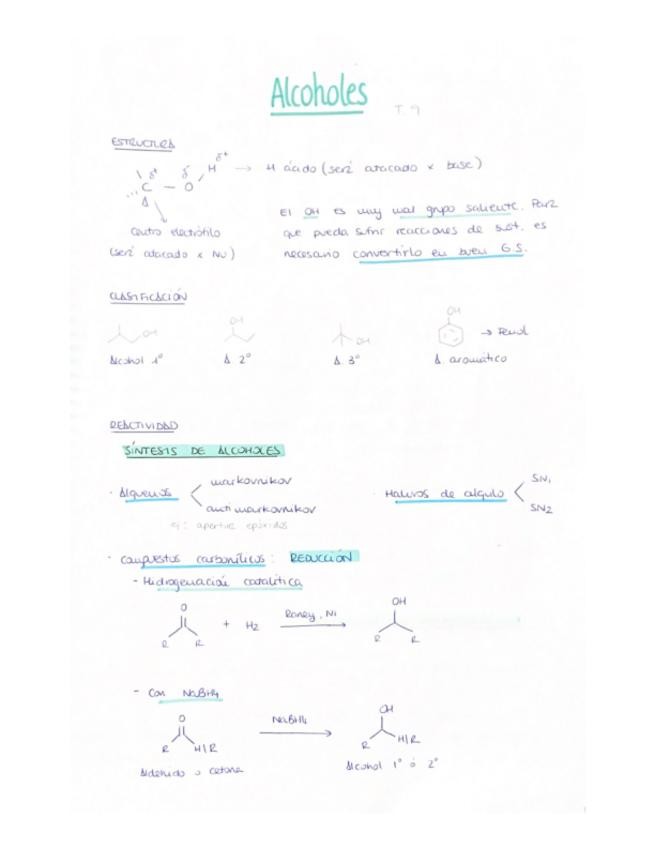 Alcoholes T.9
ESTRUCTURA
δ+ δ- H δ+ → H ácido (será atacado x base)
C – O
El OH es muy mal grupo saliente. Para
Centro electrófilo que pueda sufrir reacciones de sust. es
(será atacado x Nu) necesario convertirlo en buen G.S.
CLASIFICACIÓN
OH OH OH OH → Fenol
Alcohol 1º A. 2º A. 3º A. aromático
REACTIVIDAD
SÍNTESIS DE ALCOHOLES
· Alquenos < markovnikov
anti markovnikov
ej: apertura epóxidos
· Haluros de alquilo < SN1
SN2
· Compuestos carbonílicos: REDUCCIÓN
- Hidrogenación catalítica
O OH
+ H2 Raney, Ni
R R R R
- Con NaBH4
O NaBH4 OH
R H/R R H/R
Aldehido o cetona Alcohol 1º ó 2º